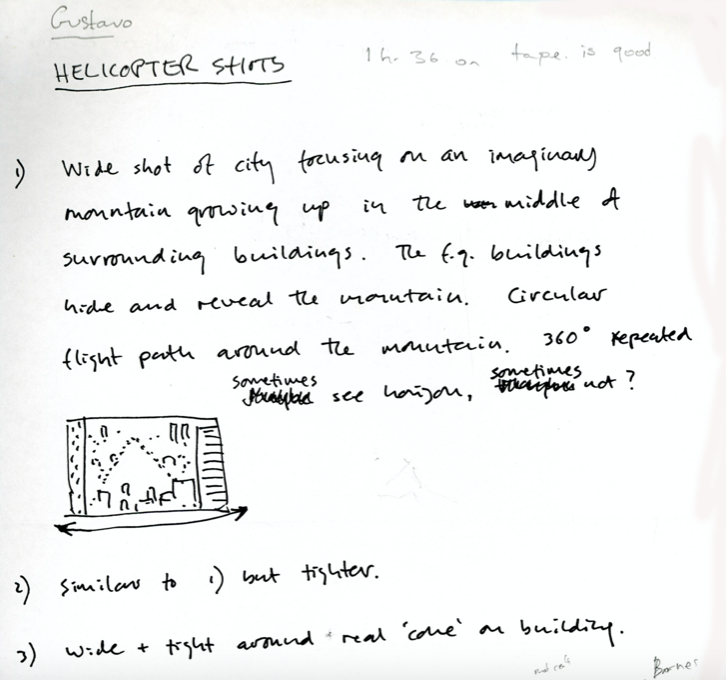 Gustavo
HELICOPTER SHOTS
1h-36 on tape. is good
1) Wide shot of city focusing on an imaginary
mountain growing up in the middle of
surrounding buildings. The f.g. buildings
hide and reveal the mountain. Circular
flight path around the mountain. 360° repeated
sometimes see horizon, sometimes not?
2) Similar to 1) but tighter.
3) Wide + tight around real 'cone' on building.
Barnes